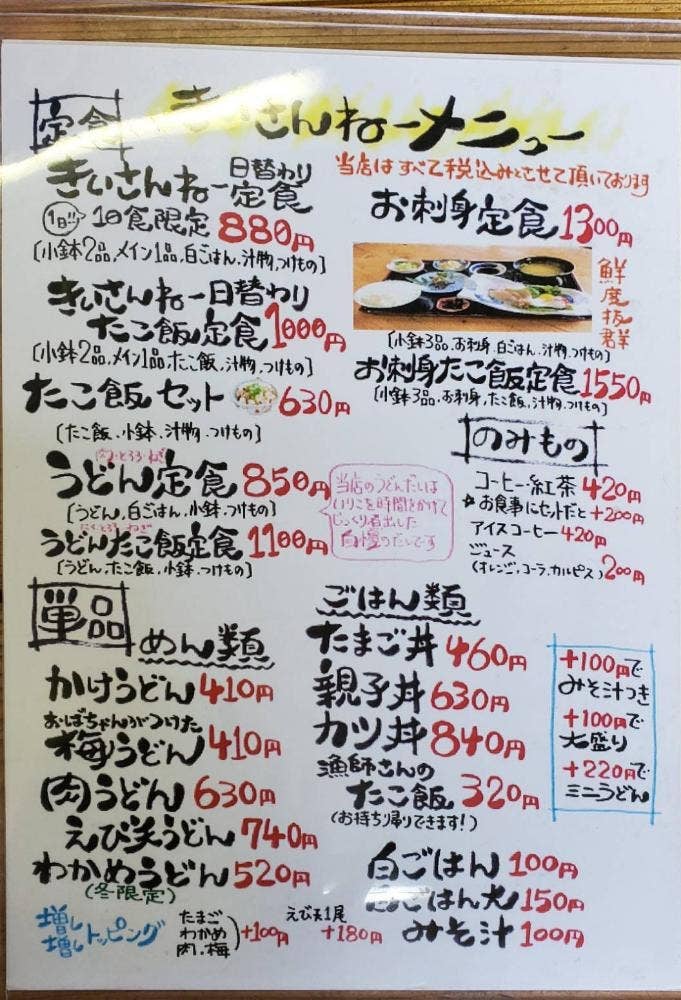 定食
きいさんねーメニュー
当店はすべて税込みとさせて頂いております
きいさんねー日替わり定食
1日!!10食限定 880円
〔小鉢2品,メイン1品,白ごはん,汁物,つけもの〕
きいさんねー日替わり
たこ飯定食 1000円
〔小鉢2品,メイン1品,たこ飯,汁物,つけもの〕
たこ飯セット 630円
〔たこ飯.小鉢.汁物.つけもの〕
肉・とろろ・ねぎ
うどん定食 850円
〔うどん,白ごはん,小鉢.つけもの〕
にく・とろろ・ねぎ
うどんたこ飯定食 1100円
〔うどん.たこ飯.小鉢.つけもの〕
当店のうどんだしは
いりこを時間をかけて
じっくり煮出した
自慢のだしです
お刺身定食 1300円
鮮度抜群
〔小鉢3品.お刺身.白ごはん.汁物.つけもの〕
お刺身たこ飯定食 1550円
〔小鉢3品,お刺身,たこ飯,汁物,つけもの〕
のみもの
コーヒー・紅茶 420円
★お食事にセットだと+200円
アイスコーヒー 420円
ジュース
(オレンジ,コーラ,カルピス) 200円
単品
めん類
かけうどん 410円
おばちゃんがつけた
梅うどん 410円
肉うどん 630円
えび天うどん 740円
わかめうどん 520円
(冬限定)
増し増しトッピング
たまご
わかめ
肉.梅
)+100円
えび天1尾
+180円
ごはん類
たまご丼 460円
親子丼 630円
カツ丼 840円
漁師さんの
たこ飯 320円
(お持ち帰りできます!)
白ごはん 100円
白ごはん大 150円
みそ汁 100円
+100円で
みそ汁つき
+100円で
大盛り
+220円で
ミニうどん